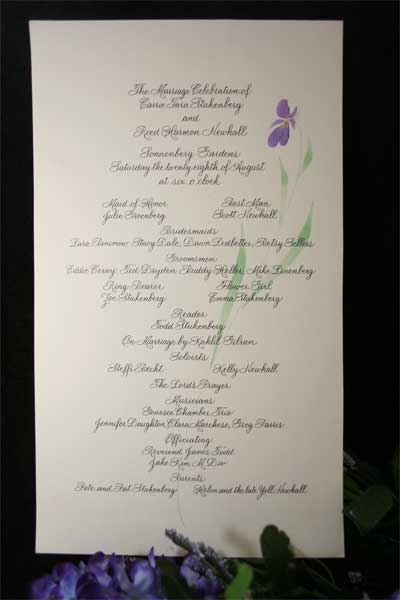 The Marriage Celebration of
Carrie Tara Stukenberg
and
Reed Harmon Newhall
Sonnenberg Gardens
Saturday the twenty eighth of August
at six o'clock
Maid of Honor Best Man
Julie Greenberg Scott Newhall
Bridesmaids
Tara Stacy Dale, Dawn Ledbetter, Betsy Sellers
Groomsmen
Eddie Cerny, Ted Dryden, Buddy Heller, Mike
Ring Bearer Flower Girl
Zoe Stukenberg Emma Stukenberg
Reader
Todd Stukenberg
On Marriage by Kahlil Gibran
Soloists
Steffi Kelly Newhall
The Lord's Prayer
Musicians
Genesee Chamber Trio
Jennifer Daughton, Clara Marchese, Greg
Officiating
Reverend James Todd
Jake Kim M Div
Parents
Pete and Pat Stukenberg Helen and the late Newhall